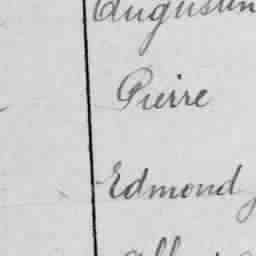 Augustin
Pierre
Edmond